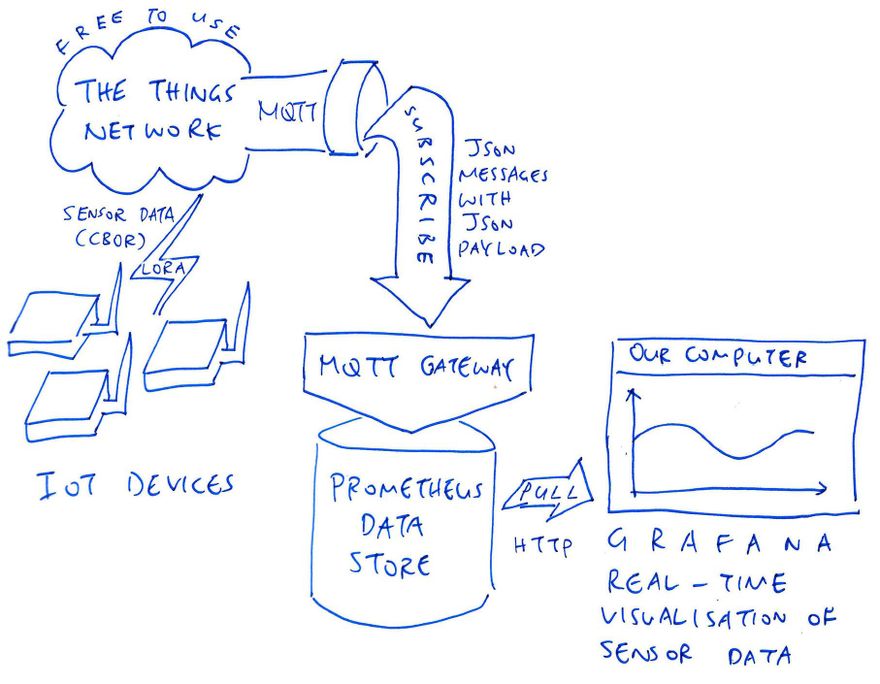 FREE TO USE
THE THINGS
NETWORK
MQTT
SUBSCRIBE
JSON
MESSAGES
WITH
JSON
PAYLOAD
SENSOR DATA
(CBOR)
LORA
IOT DEVICES
MQTT GATEWAY
PROMETHEUS
DATA
STORE
PULL
HTTP
OUR COMPUTER
GRAFANA
REAL-TIME
VISUALISATION OF
SENSOR DATA